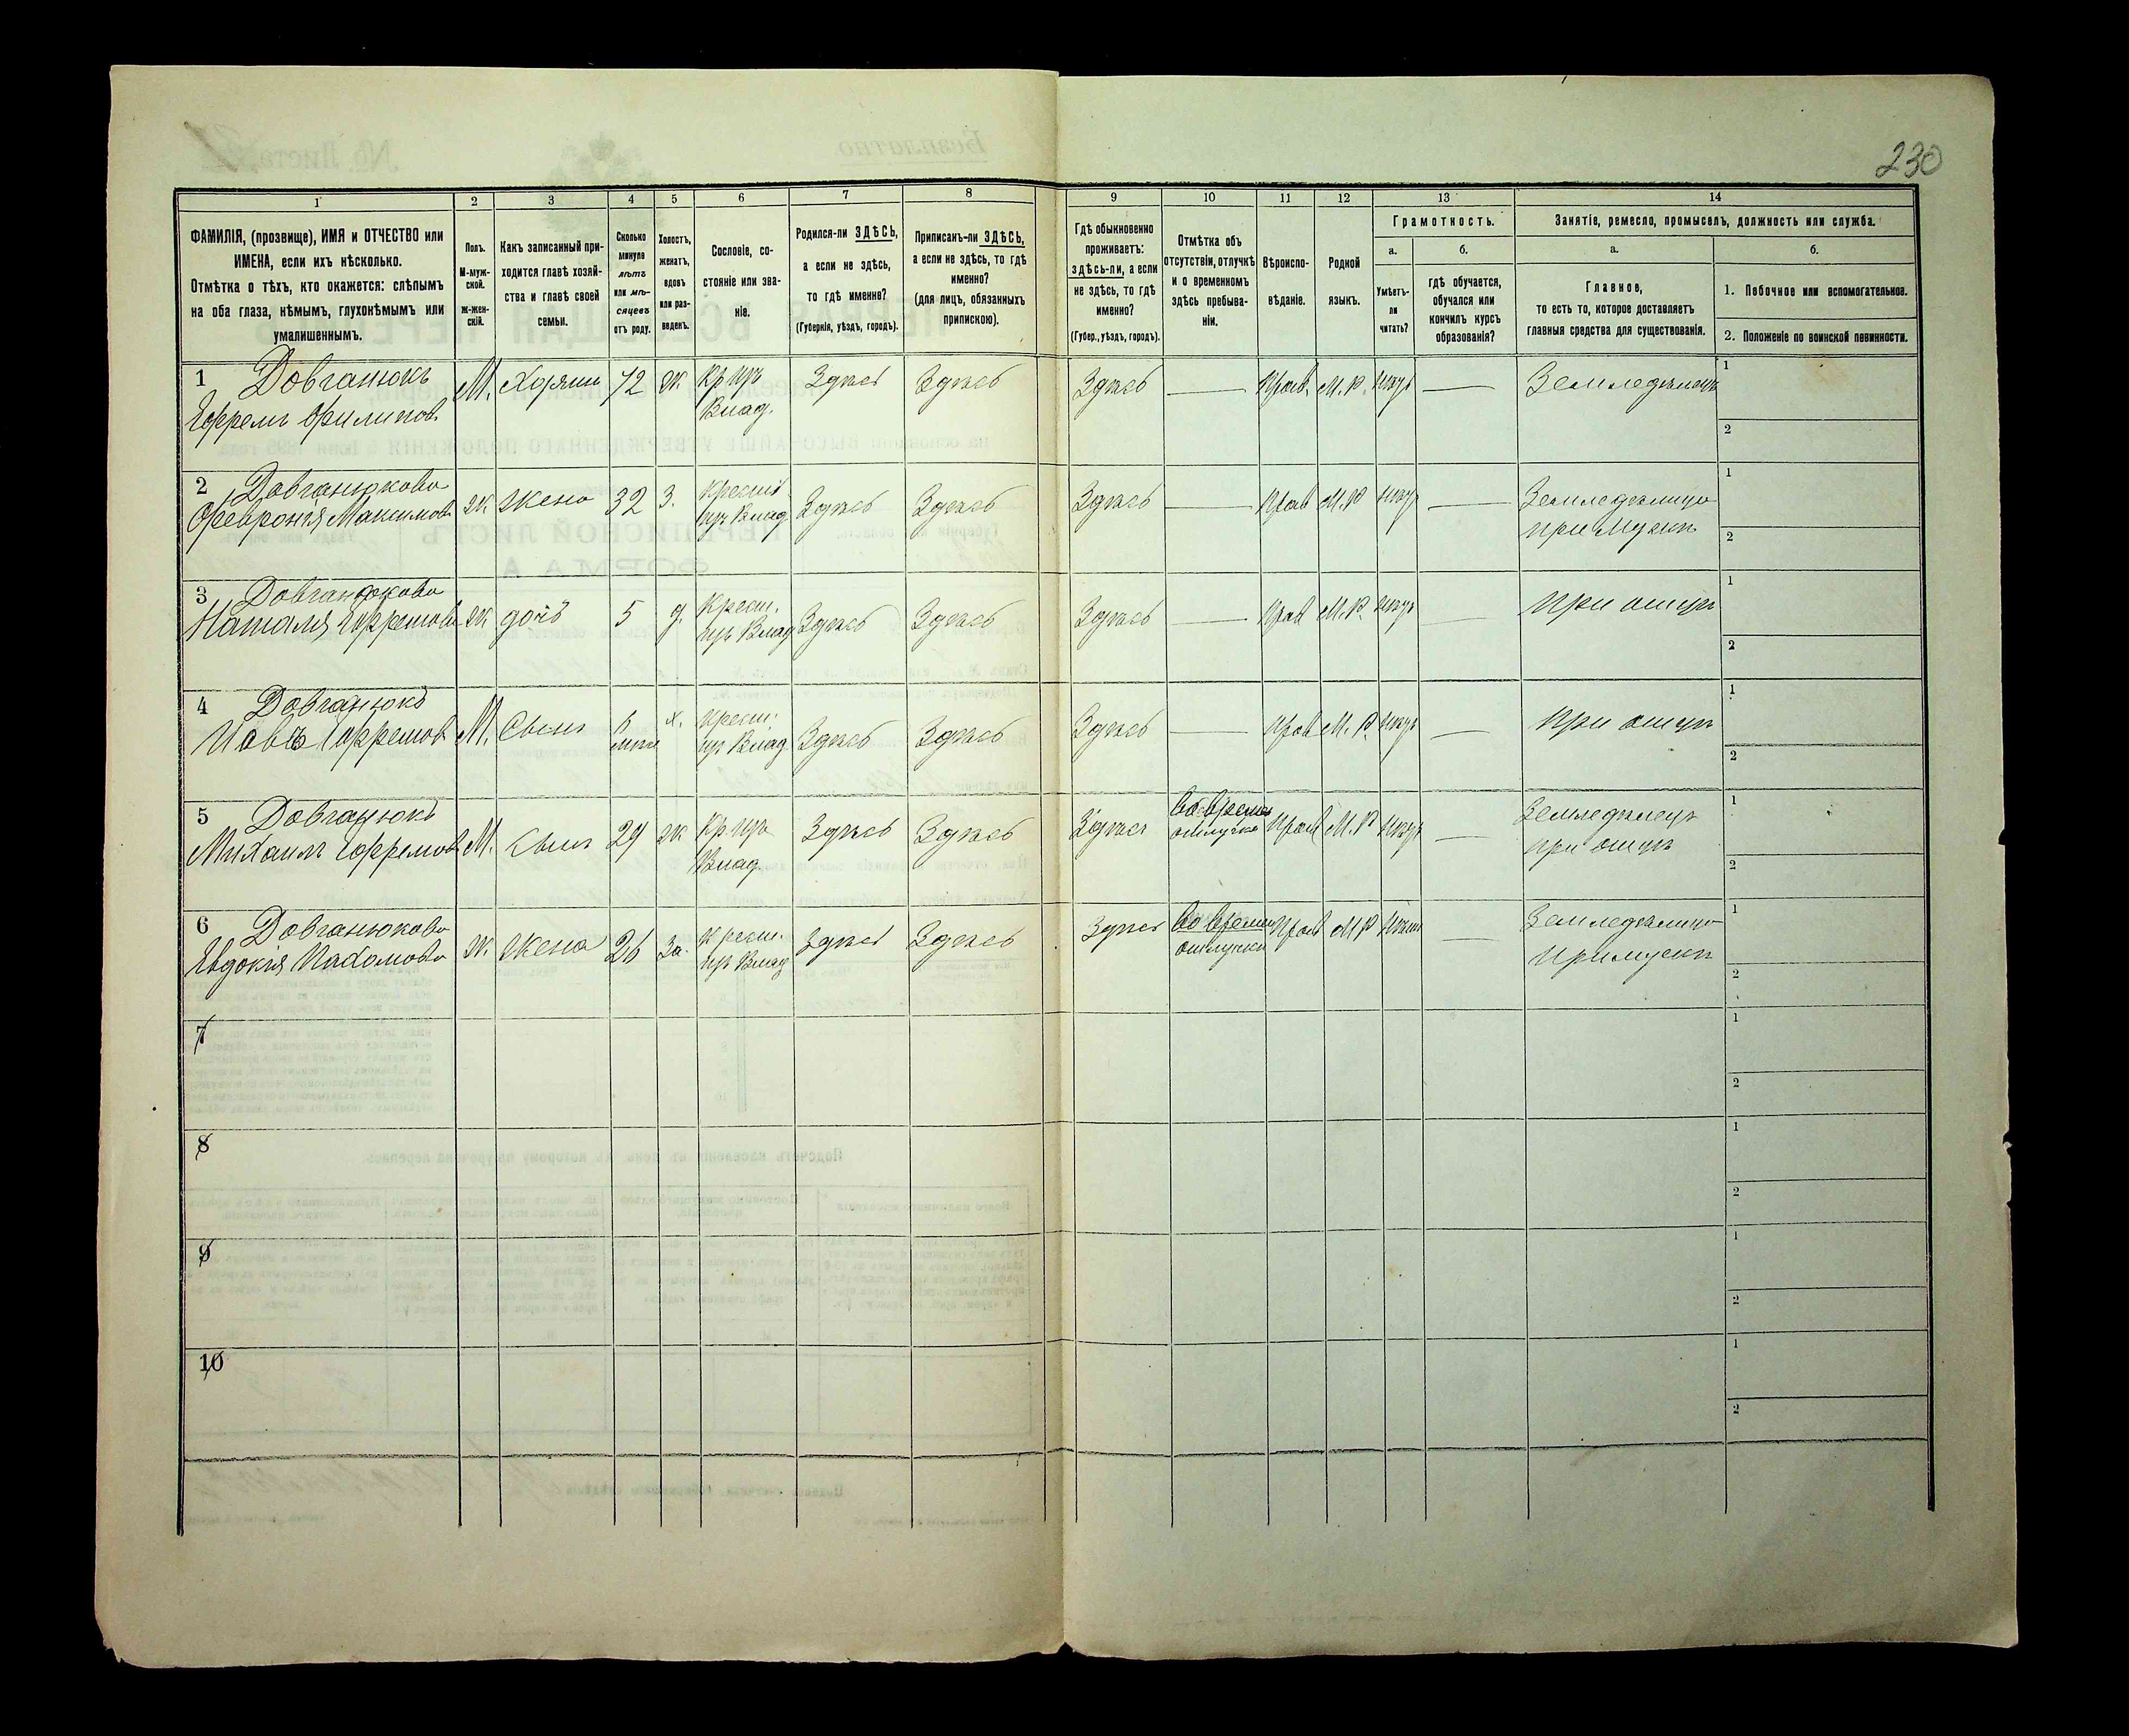 230
1 2 3 4 5 6 7 8 9 10 11 12 13 14
ФАМИЛІЯ, (прозвище), ИМЯ и ОТЧЕСТВО или
ИМЕНА, если ихъ нѣсколько.
Отмѣтка о тѣхъ, кто окажется: слѣпымъ
на оба глаза, нѣмымъ, глухонѣмымъ или
умалишеннымъ.
Полъ.
М-муж-
ской.
ж-жен-
скій.
Какъ записанный при-
ходится главѣ хозяй-
ства и главѣ своей
семьи.
Сколько
минуло
лѣтъ
или мѣ-
сяцевъ
отъ роду.
Холостъ,
женатъ,
вдовъ
или раз-
веденъ.
Сословіе, со-
стояніе или зва-
ніе.
Родился-ли ЗДѢСЬ,
а если не здѣсь,
то гдѣ именно?
(Губернія, уѣздъ, городъ).
Приписанъ-ли ЗДѢСЬ,
а если не здѣсь, то гдѣ
именно?
(для лицъ, обязанныхъ
припискою).
Гдѣ обыкновенно
проживаетъ:
здѣсь-ли, а если
не здѣсь, то гдѣ
именно?
(Губер., уѣздъ, городъ).
Отмѣтка объ
отсутствіи, отлучкѣ
и о временномъ
здѣсь пребыва-
ніи.
Вѣроиспо-
вѣданіе.
Родной
языкъ.
Грамотность.
а.
Умѣетъ-
ли
читать?
б.
гдѣ обучается,
обучался или
кончилъ курсъ
образованія?
Занятіе, ремесло, промыселъ, должность или служба.
а.
Главное,
то есть то, которое доставляетъ
главныя средства для существованія.
б.
1. Побочное или вспомогательное.
2. Положеніе по воинской повинности.
1 Довганюкъ
Ефремъ Филипов. М. Хозяин 72 ж. Кр. изъ Здѣсь Здѣсь Здѣсь — Прав. М. Р. — Земледѣлецъ 1
Влад.
2
2 Довганюкова
Февронія Максимов. ж. жена 32 З. Крест. Здѣсь Здѣсь Здѣсь — Прав М. Р — Земледѣлица 1
изъ Влад. при мужѣ
2
3 Довганюкова
Наталя Ефремова ж дочь 5 д. Крест. Здѣсь Здѣсь Здѣсь — Прав М. Р. — при отцѣ 1
изъ Влад
2
4 Довганюкъ
Иовъ Ефремов М. Сынъ х. Крест. Здѣсь Здѣсь Здѣсь — Прав М. Р. — при отцѣ 1
из Влад.
2
5 Довганюкъ
Михаилъ Ефремов М. Сынъ 29 ж Кр. изъ Здѣсь Здѣсь Здѣсь Во время Прав М. Р — Земледѣлецъ 1
Влад. отлучка при отцѣ
2
6 Довганюкова
Евдокія Пахомова ж. жена 26 За. Крест. Здѣсь Здѣсь Здѣсь Во время Прав М Р — Земледѣлица 1
изъ Влад отлучки при мужѣ
2
7 1
2
8 1
2
9 1
2
10 1
2